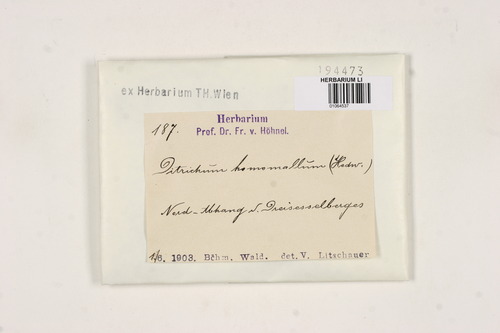 194473
HERBARIUM LI
01064537
ex Herbarium TH.Wien
Herbarium
187.
Prof. Dr. Fr. v. Höhnel.
Ditrichum homomallum (Hedw.)
Nord-Abhang d. Dreisesselberges
1/6. 1903. Böhm. Wald. det. V. Litschauer